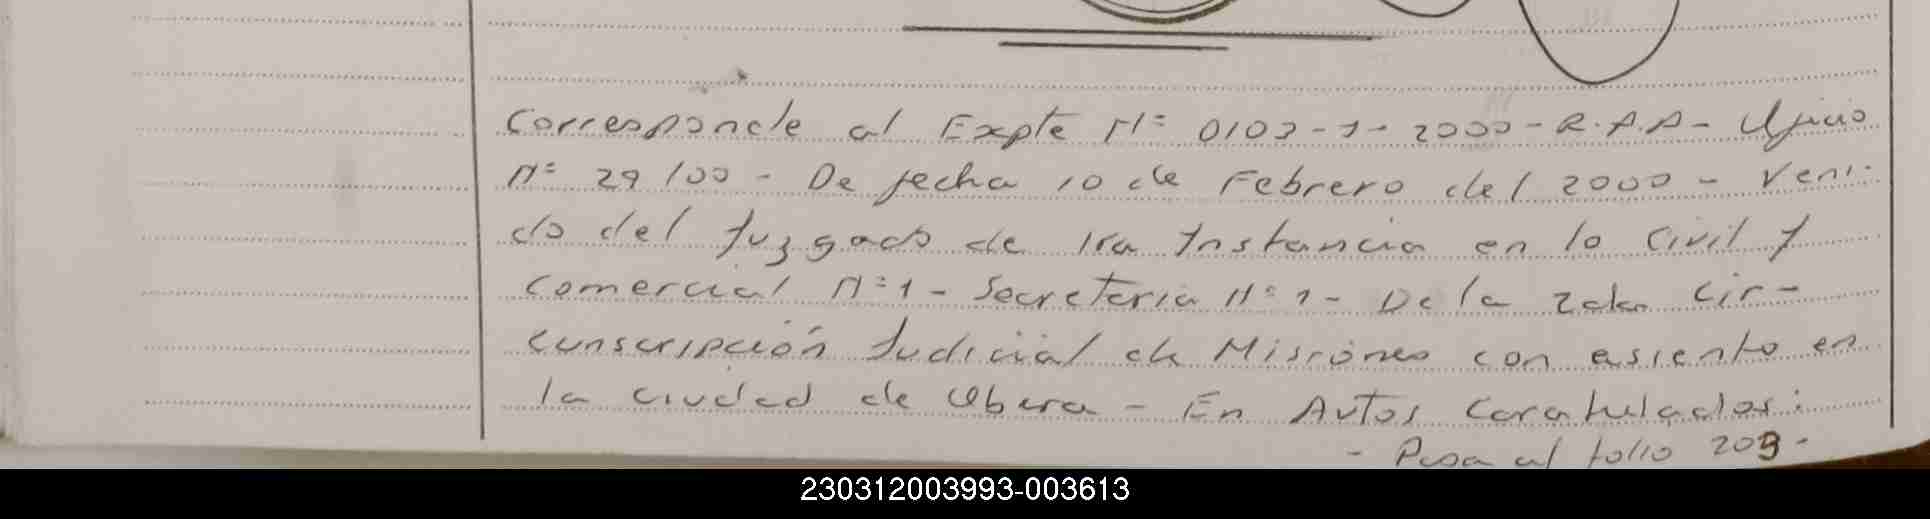 Corresponde al Expte N= 0103-1-2000-R.A.A- Oficio
N= 29/00 - De fecha 10 de Febrero del 2000 - Veni-
do del Juzgado de 1ra Instancia en lo Civil y
Comercial N=1 - Secretaria N=1 - De la 2da Cir-
cunscripción Judicial de Misiones con asiento en
la ciudad de Obera - En Autos Caratulados:
- Pasa al folio 209 -
230312003993-003613